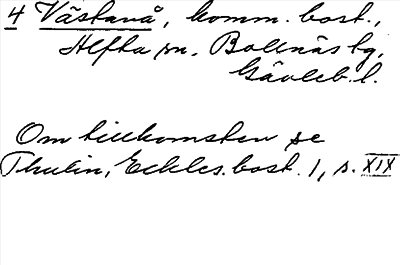 4 Västanå, komm. bost.,
Alfta sn. Bollnäs tg,
Gävleb. l.
Om tillkomsten se
Thulin, Eckles. bost. 1, s. XIX